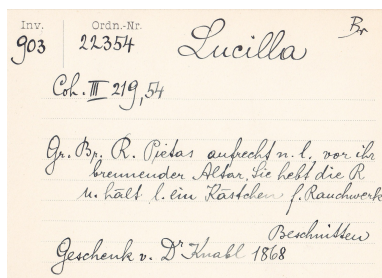 Inv. Ordn.-Nr. Br
903 22354 Lucilla
Coh. III 219,54
Gr. Br. R. Pietas aufrecht n. l. vor ihr
brennender Altar. Sie hebt die R
u. hält l. ein Kästchen f. Rauchwerk
Beschnitten
Geschenk v. Dr Knabl 1868